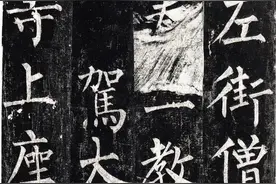 左街僧
教
駕大
寺上座